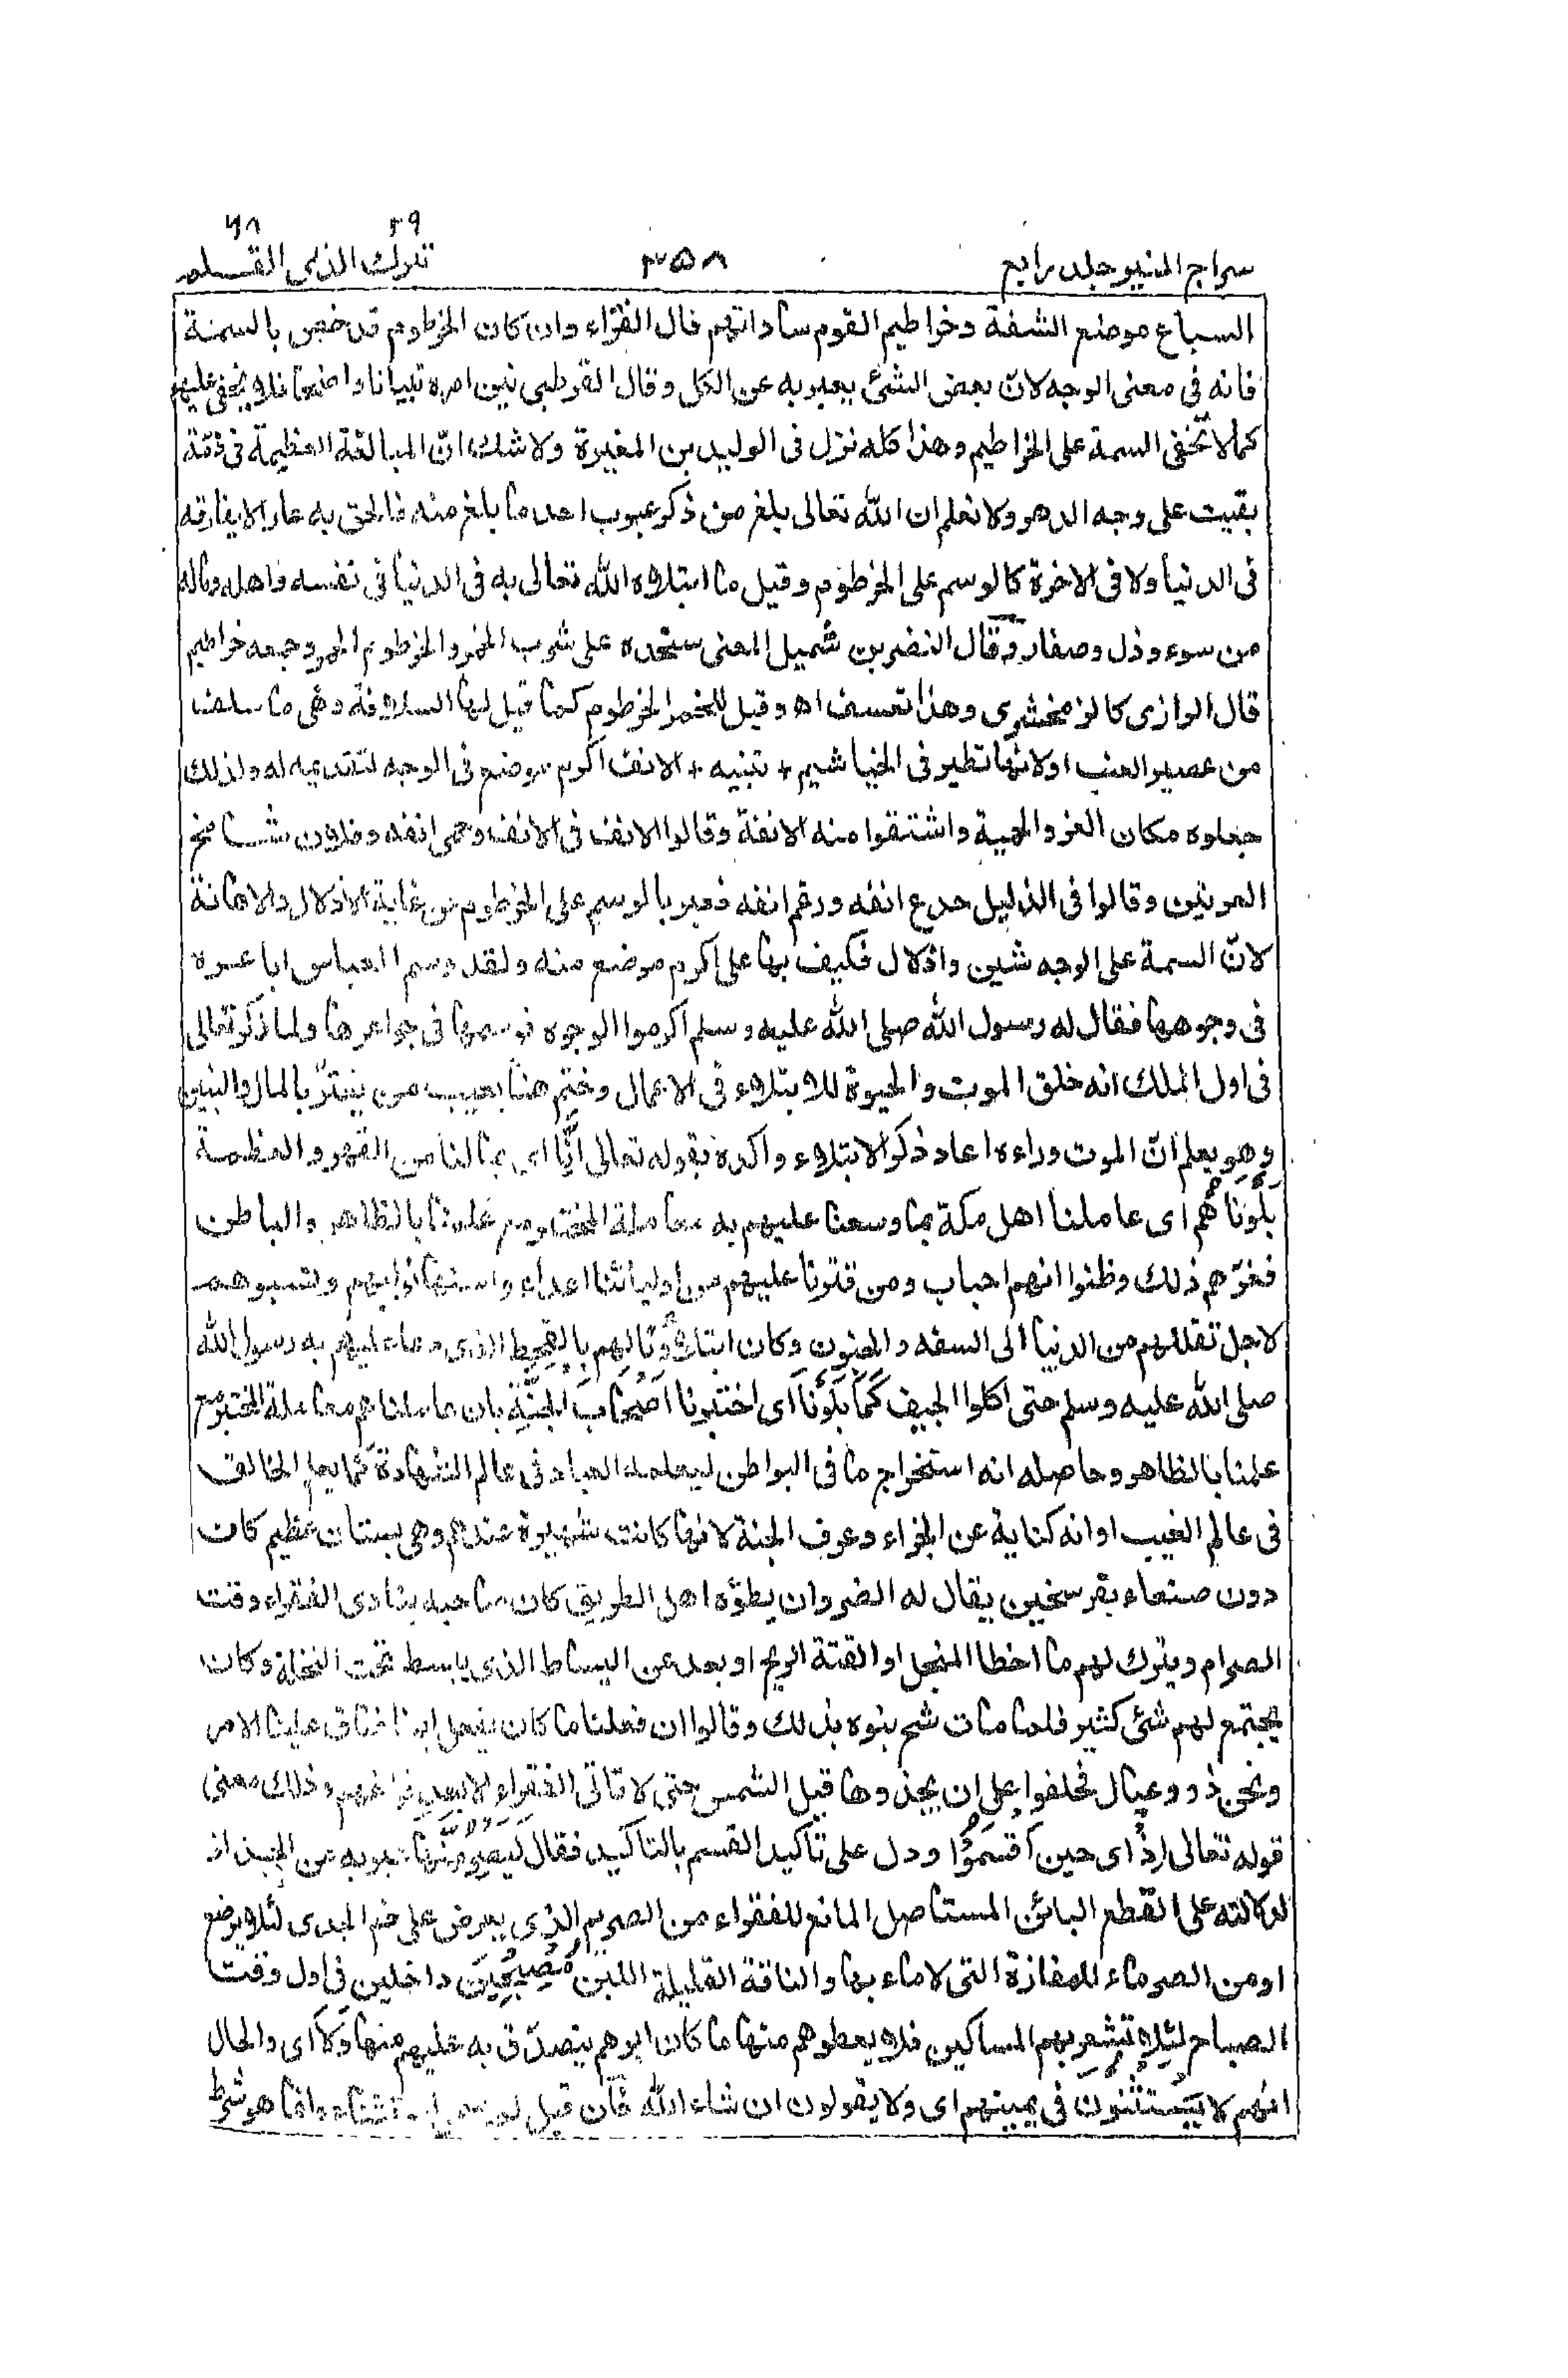 ۲۹ ۶۸
سراج المنير جلد رابع ۳۵۸ تبرك الذى القلم
السباع موضع الشفة وخراطيم القوم ساداتهم قال الفرّاء وان كان الخرطوم قد خص بالسمنة
فانه فى معنى الوجه لان بعض الشئ يعبر به عن الكل وقال القرطبى نبين امره تبيانا واضحا فلا يخفى عليهم
كما لا تخفى السمة على الخراطيم وهذا كله نزل فى الوليد بن المغيرة ولا شك انّ المبالغة العظيمة فى ذمّه
بقيت على وجه الدهر ولا نعلم ان الله تعالى بلغ من ذكر عيوب احد ما بلغ منه فالحق به عارا لا يفارقه
فى الدنيا ولا فى الاخرة كالوسم على الخرطوم وقيل ما ابتلاه الله تعالى به فى الدنيا فى نفسه واهله وماله
من سوء وذل وصغار وقال النضر بن شميل المعنى سنحده على شرب الخمر والخرطوم الخمر وجمعه خراطيم
قال الرازى كالزمخشرى وهذا تعسف اه وقيل للخمر الخرطوم كما قيل لها السلافة وهى ما سلف
من عصير العنب او لانها تطير فى الخياشيم + تنبيه + الانف اكرم موضع فى الوجه لتقديمه له ولذلك
جعلوه مكان العز والحمية واشتقوا منه الانفة وقالوا الانف فى الانف وحمى انفه وفلان شامخ
العرنين وقالوا فى الذليل جدع انفه ورغم انفه فعبر بالوسم على الخرطوم عن غاية الاذلال والاهانة
لانّ السمة على الوجه شين واذلال فكيف بها على اكرم موضع منه ولقد وسم العباس اباعره
فى وجوهها فقال له رسول الله صلى الله عليه وسلم اكرموا الوجوه فوسمها فى جواعرها ولما ذكر تعالى
فى اول الملك انه خلق الموت والحيوة للابتلاء فى الاعمال وختم هنا بعيب من يغترّ بالمال والبنين
وهو يعلم انّ الموت وراءه اعاد ذكر الابتلاء واكده بقوله تعالى اِنَّا اى بما لنا من القهر والعظمة
بَلَوْنَاهُمْ اى عاملنا اهل مكة بما وسعنا عليهم به معاملة المختبر مع علمنا بالظاهر والباطن
فغرّهم ذلك وظنوا انهم احباب ومن قترنا عليهم من اوليائنا اعداء واستهانوا بهم ونسبوهم
لاجل تقللهم من الدنيا الى السفه والجنون وكان ابتلاؤنا لهم بالقحط الذى دعا عليهم به رسول الله
صلى الله عليه وسلم حتى اكلوا الجيف كَمَا بَلَوْنَا اى اختبرنا اَصْحَابَ الْجَنَّةِ بان عاملناهم معاملة المختبر مع
علمنا بالظاهر وحاصله انه استخراج ما فى البواطن ليعلمه العباد فى عالم الشهادة كما يعلم الخالق
فى عالم الغيب او انه كناية عن الجزاء وعرف الجنة لانها كانت شهيرة عندهم وهى بستان عظيم كان
دون صنعاء بفرسخين يقال له الضروان يطؤه اهل الطريق كان صاحبه ينادى الفقراء وقت
الصرام ويترك لهم ما اخطا المنجل او القته الريح او بعد عن البساط الذى يبسط تحت النخلة وكان
يجتمع لهم شئ كثير فلما مات شح بنوه بذلك وقالوا ان فعلنا ما كان يفعل ابونا ضاق علينا الامر
ونحن ذوو عيال فحلفوا على ان يجذوها قبل الشمس حتى لا تاتى الفقراء الا بعد فراغهم وذلك معنى
قوله تعالى اِذْ اى حين اَقْسَمُوْا ودل على تأكيد القسم بالتاكيد فقال لَيَصْرِمُنَّهَا عبر به عن الجذاذ
لدلالته على القطع البائن المستاصل المانع للفقراء من الصريم الذى يعرض على فم الجدى لئلا يرضع
او من الصرماء للمفازة التى لا ماء بها والناقة القليلة اللبن مُصْبِحِيْنَ داخلين فى اول وقت
الصباح لئلا تشعر بهم المساكين فلا يعطوهم منها ما كان ابوهم يتصدّق به عليهم منها وَلَا اى والحال
انهم لا يَسْتَثْنُوْنَ فى يمينهم اى ولا يقولون ان شاء الله فان قيل لم سمى استثناء وانما هو شرط